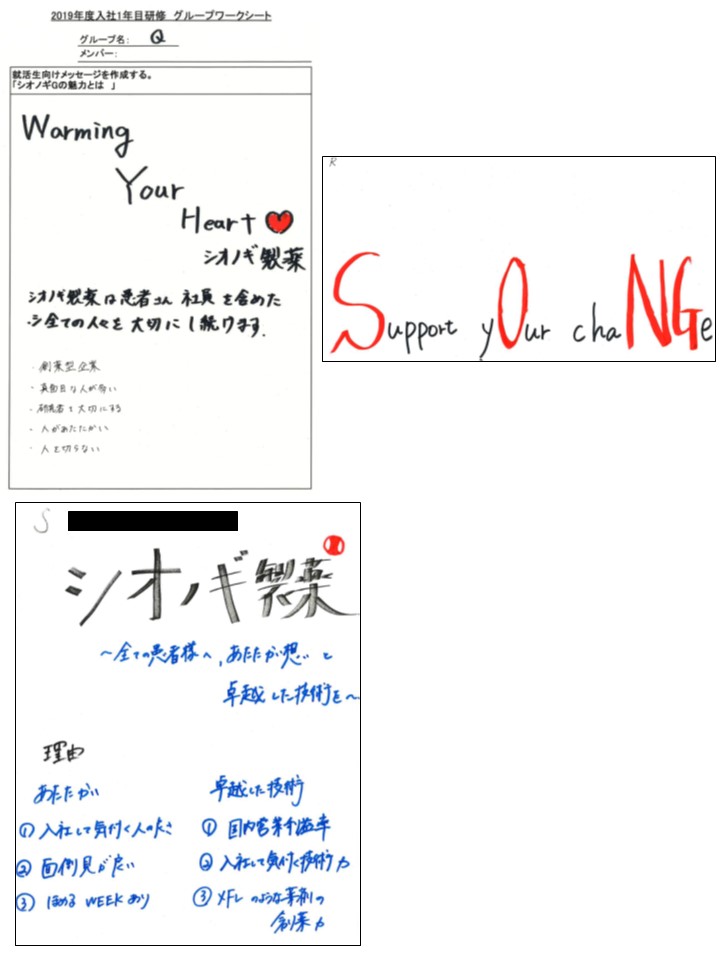 2019年度入社1年目研修 グループワークシート
グループ名: Q
メンバー:
就活生向けメッセージを作成する。
「シオノギGの魅力とは 」
Warming
Your
Heart
シオノギ製薬
シオノギ製薬は患者さん 社員 を含めた
全ての人々を 大切に し続けます.
・創薬型企業
・真面目な人が多い
・研究者を大切にする
・人があたたかい
・人を切らない
R
Support yOur chaNGe
S
シオノギ製薬
～全ての患者様へ,あたたかい想いと
卓越した技術を～
理由
あたたかい
① 入社して気付く人の良さ
② 面倒見が良い
③ ほめる WEEKあり
卓越した技術
① 国内営業利益率
② 入社して気付く技術力
③ のような薬剤の
創薬力